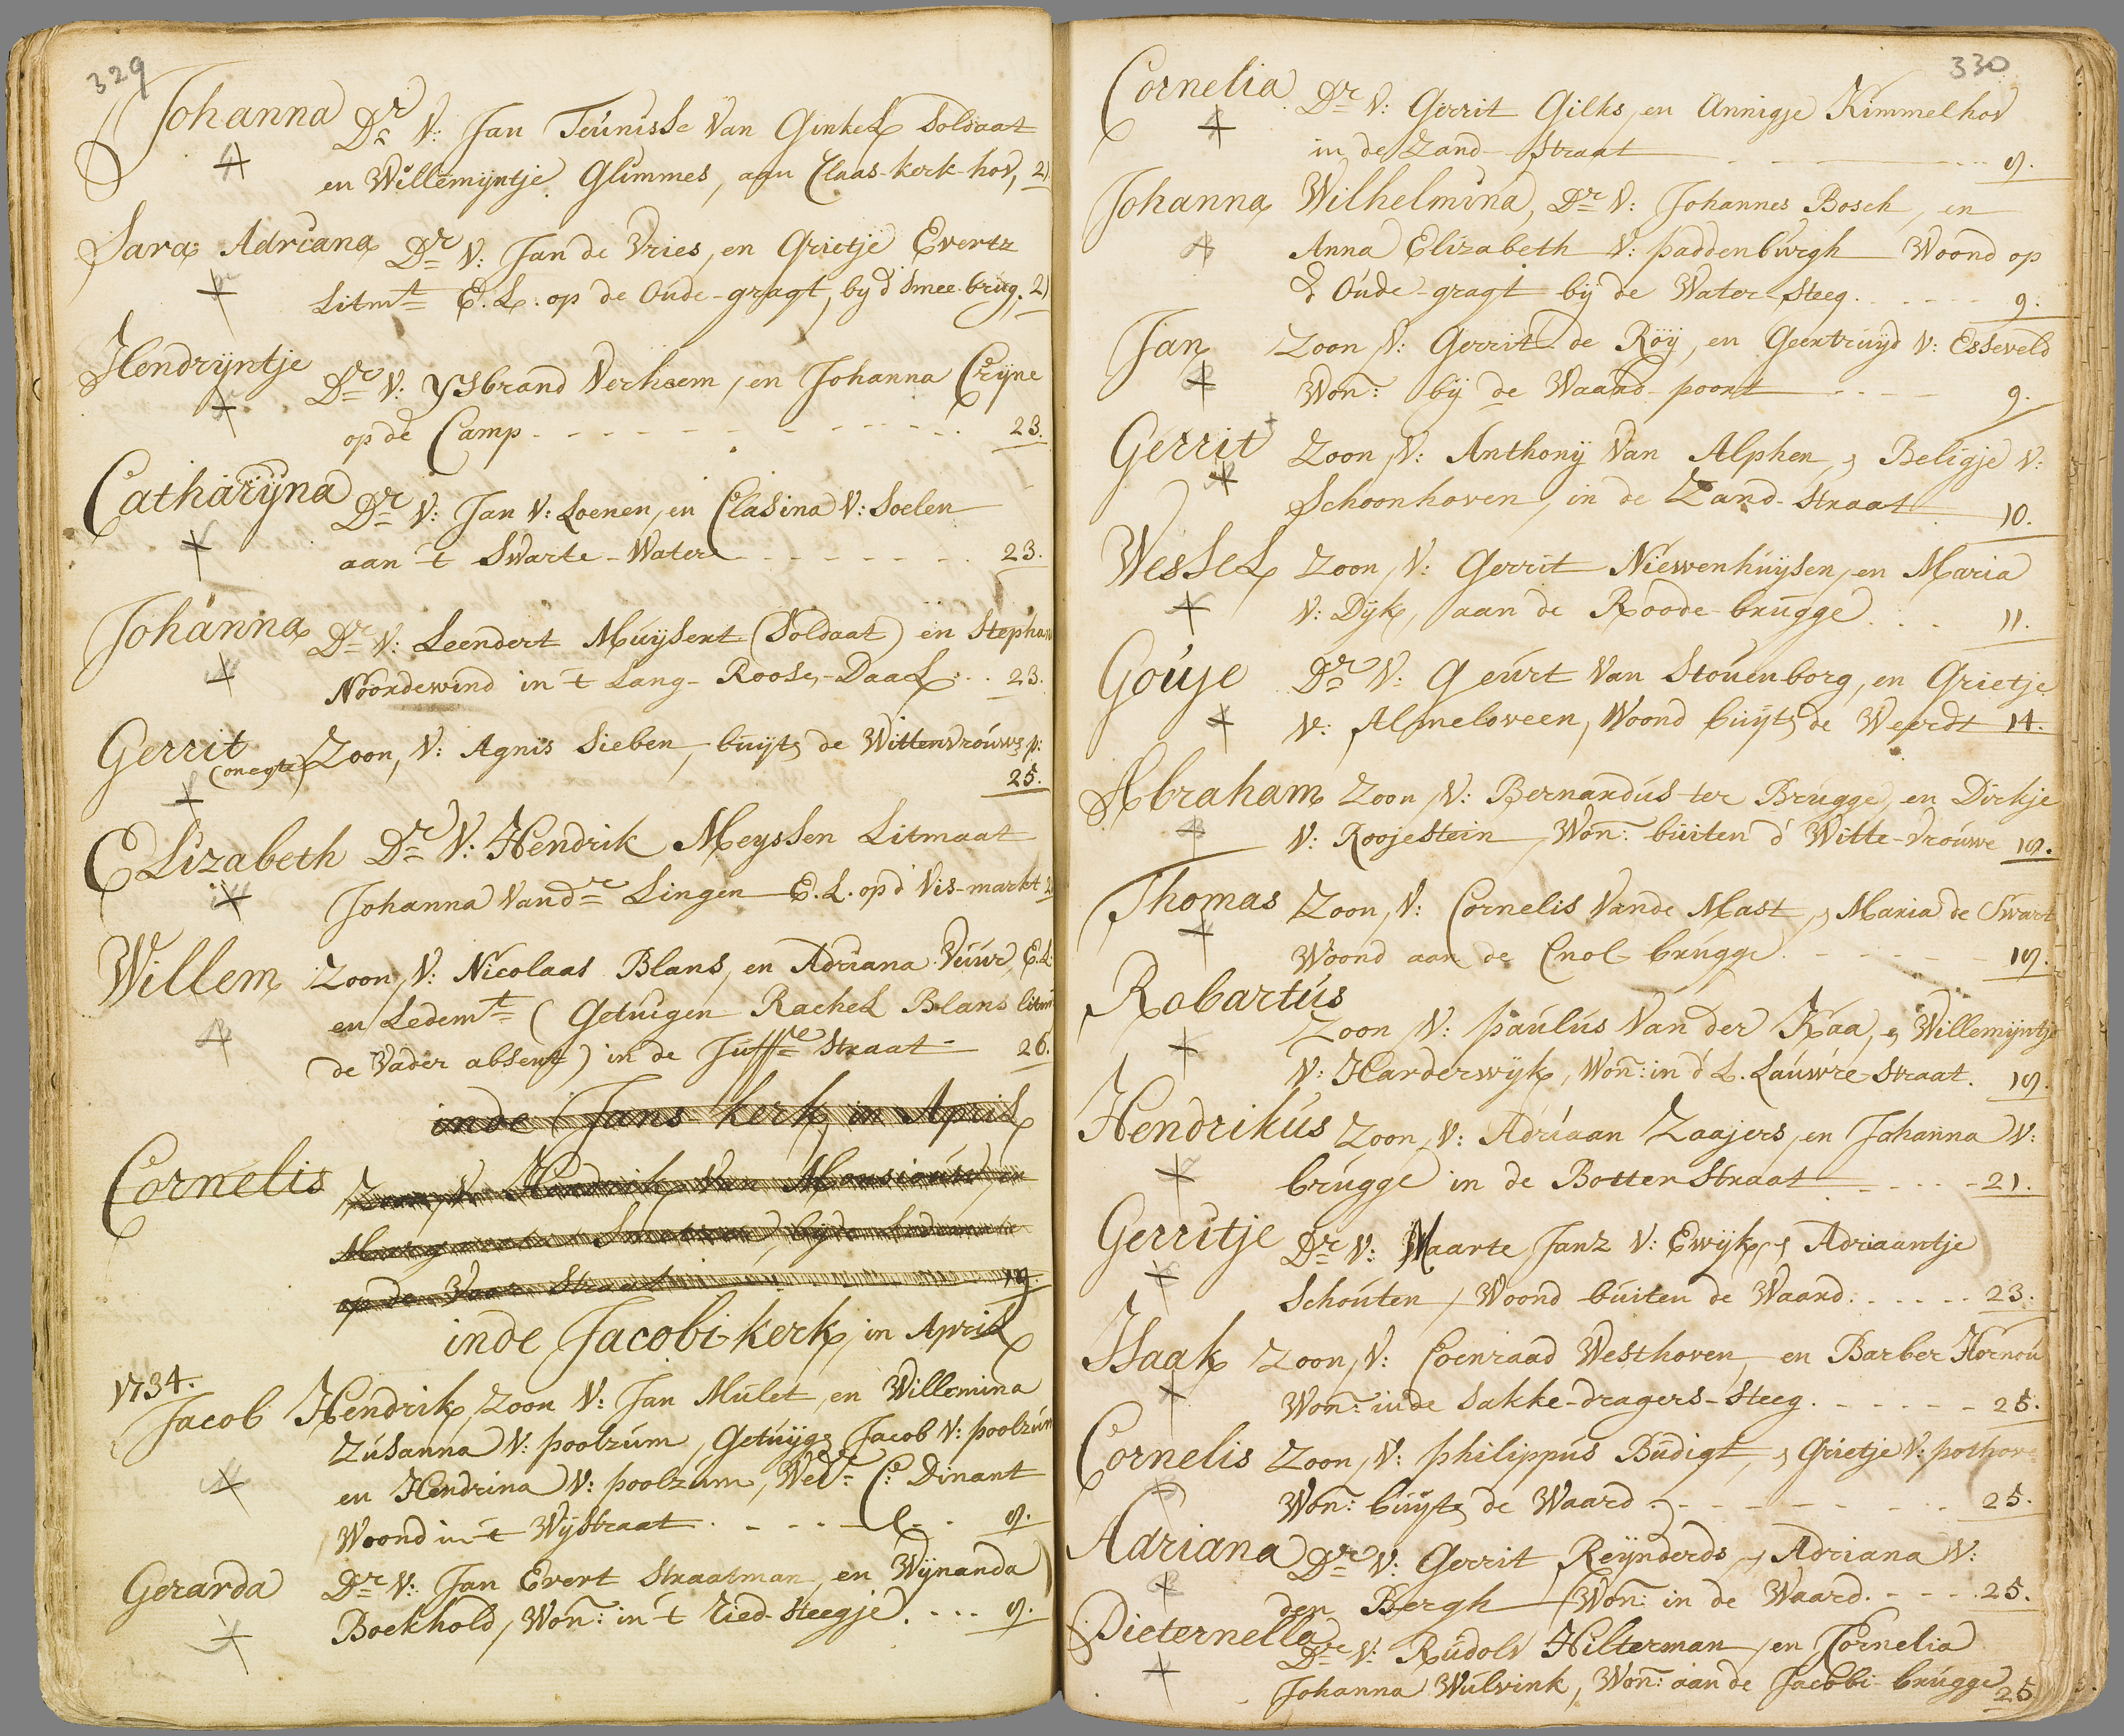 329
Johanna Dr V: Jan Teunisse Van Ginkel Soldaat
en Willemijntje Glimmes, aan Claas-kerk-hov, 2
Sara Adriana Dr V: Jan de Vries, en Grietje Evertz
Litmt E.L: op de Oude-gragt, by d' Smee-brug. 2
Hendrijntje Dr V: Ysbrand Verhoem, en Johanna Crijne
op de Camp 23.
Catharijna Dr V: Jan V: Loenen, en Clasina V: Soelen
aan 't Swarte-Water 23.
Johanna Dr V: Leendert Muijsert (Soldaat) en Stephan
Noordewind in 't Lang-Roose-Daal 23.
Gerrit (onegte) Zoon, V: Agnis Sieben, buijts de Wittenvrouws p:
25.
Elizabeth Dr V: Hendrik Meyssen Litmaat
Johanna Vandr Lingen E.L. op d' Vis-markt
Willem Zoon, V: Nicolaas Blans, en Adriana Vuur, E.L.
en Ledemt (Getuigen Rachel Blans litmt
de Vader absent) in de Juffre Straat 26.
inde Jans kerk, in April
Cornelis Zoon, V: Hendrik Van en
op de Straat 19.
inde Jacobi-kerk, in April
1734.
Jacob Hendrik, Zoon V: Jan Mulet, en Willemina
Zusanna V: poolzum, Getuijge Jacob V: poolzum
en Hendrina V: poolzum, Wedr C: Dinant
Woond in 't Wijstraat 9.
Gerarda Dr V: Jan Evert Straatman, en Wijnanda
Boekhold, Won: in 't Ried-Steegje 9.
330
Cornelia Dr V: Gerrit Gilks, en Annigje Kimmelhov
in de Zand-Straat 9.
Johanna Wilhelmina, Dr V: Johannes Bosch, en
Anna Elizabeth V: paddenburgh Woond op
d' Oude-gragt bij de Water-Steeg 9.
Jan Zoon V: Gerrit de Röij, en Geertruijd V: Esseveld
Won: bij de Waard-poort 9.
Gerrit Zoon, V: Anthonij Van Alphen, & Beligje V:
Schoonhoven, in de Zand-Straat 10.
Wessel Zoon, V: Gerrit Niewenhuijsen, en Maria
V: Dijk, aan de Roode-brugge 11.
Gouje Dr V: Geurt Van Stouenborg, en Grietje
V: Almeloveen, Woond buijts de Weerdt 14.
Abraham Zoon, V: Bernardus ter Brugge, en Dirkje
V: Roojestein, Won: buiten d' Witte-vrouwe 19.
Thomas Zoon, V: Cornelis Vande Mast, & Maria de Swart
Woond aan de Cnol-brugge 19.
Robartus
Zoon, V: paulus Van der Kaa, & Willemijntje
V: Harderwijk, Won: in d' L. Lauwre Straat. 19.
Hendrikus Zoon, V: Adriaan Zaajers, en Johanna V:
brugge in de Botter Straat 21.
Gerritje Dr V: Maarte Janz V: Ewijk, & Adriaantje
Schouten, Woond buiten de Waard 23.
Isaak Zoon, V: Coenraad Westhoven, en Barber Hornou
Won: inde Sakke-dragers-Steeg 25.
Cornelis Zoon, V: philippus Budigt, & Grietje V: pothove
Won: buijts de Waard 25.
Adriana Dr V: Gerrit Reijnderds, & Adriana V:
den Bergh, Won: in de Waard 25.
Pieternella
Dr V: Rudolv Hilterman, en Cornelia
Johanna Wulvink, Won: aan de Jacobi-brugge 25